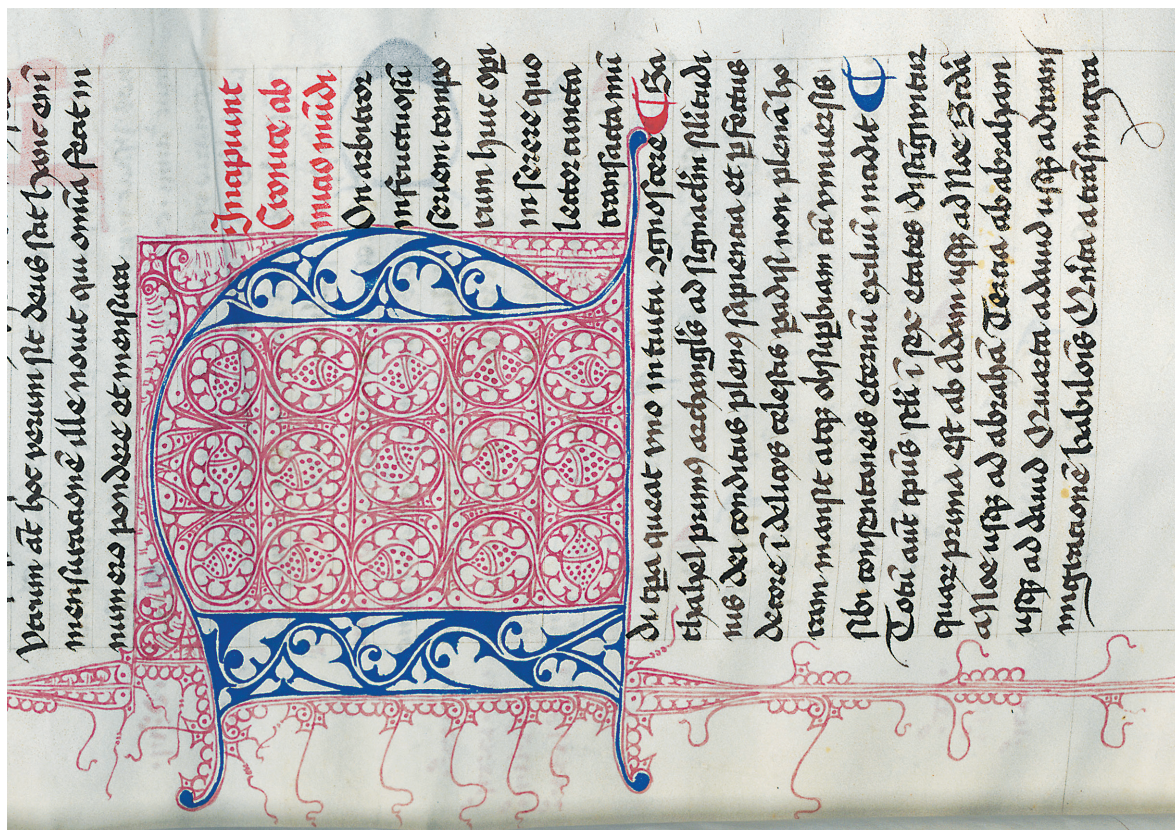 Vtrum āt hoc verum sit deus sciat hanc enī
mensuracionē ille nouit qui omīa fecit in
numero pondere et mensura
Incipiunt
Cronice ab
inicio mūdi
Non arbitror
infructuosū
seriem tempo
rum huic opī
inserere quo
lector cuncta
transacta mū
di tꝑa queat vno intuitu agnoscere ¶ Sa
thahel primꝰ archanglꝰ ad signaclm̄ silitudi
nis dei conditus plenꝰ sapiencia et ꝑfectus
decore ī delicijs celestis ꝑadisi non plenā ho
ram mansit atqꝫ ob suꝑbiam cū vniuersis
sibi consentaneis eternū exiliū incidit ¶
Totū aūt tꝑus scłi ī sex etates distīgwitur
quarꝫ prima est ab adam vsqꝫ ad Noe
a Noe vsqꝫ ad abrahā Tercia ab abraham
vsqꝫ ad dauid Quarta a dauid vsqꝫ ad transm
migracionē babilonis Qvīta a trāsmigra